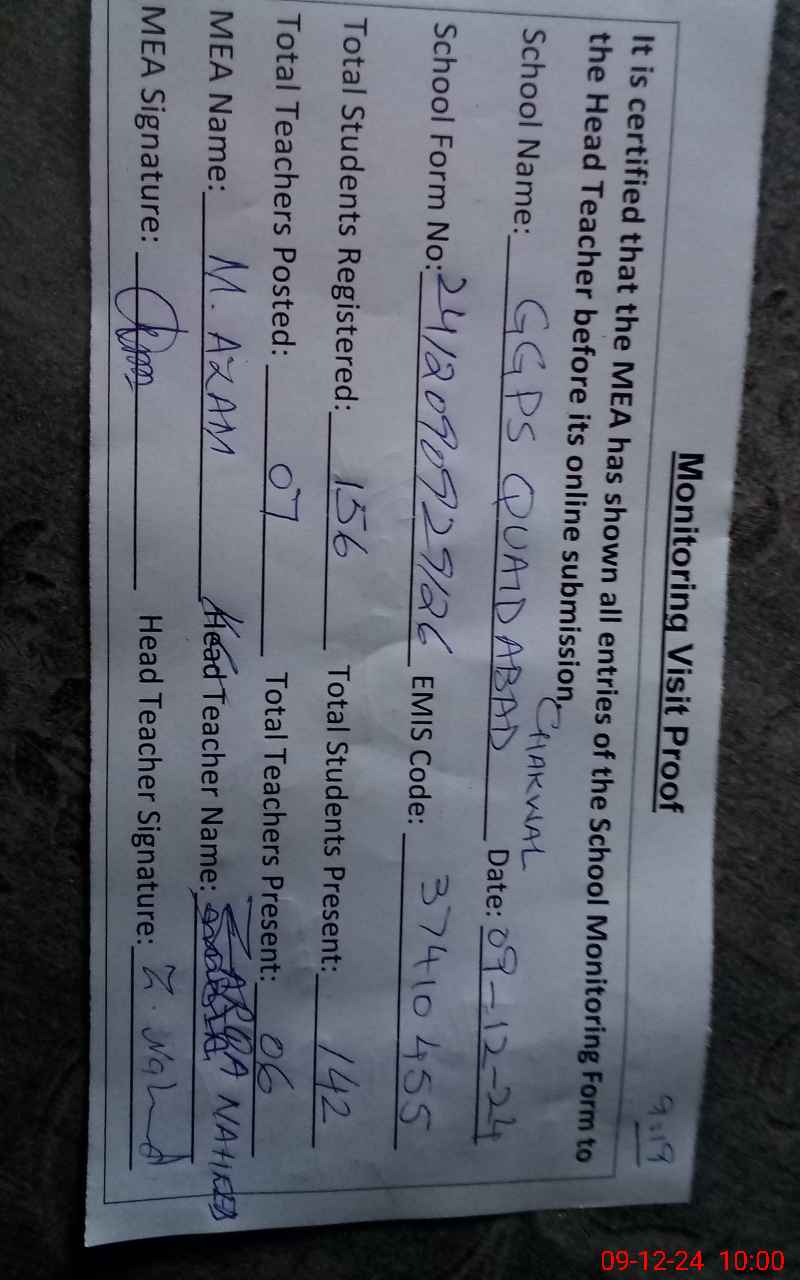 9:19
Monitoring Visit Proof
It is certified that the MEA has shown all entries of the School Monitoring Form to
the Head Teacher before its online submission.
CHAKWAL
School Name: GGPS QUAIDABAD Date: 09-12-24
School Form No: EMIS Code: 37410455
Total Students Registered: 156 Total Students Present: 142
Total Teachers Posted: 07 Total Teachers Present: 06
MEA Name: M. AZAM Head Teacher Name: NAHEED
MEA Signature: Head Teacher Signature: Z. Nahed
09-12-24 10:00